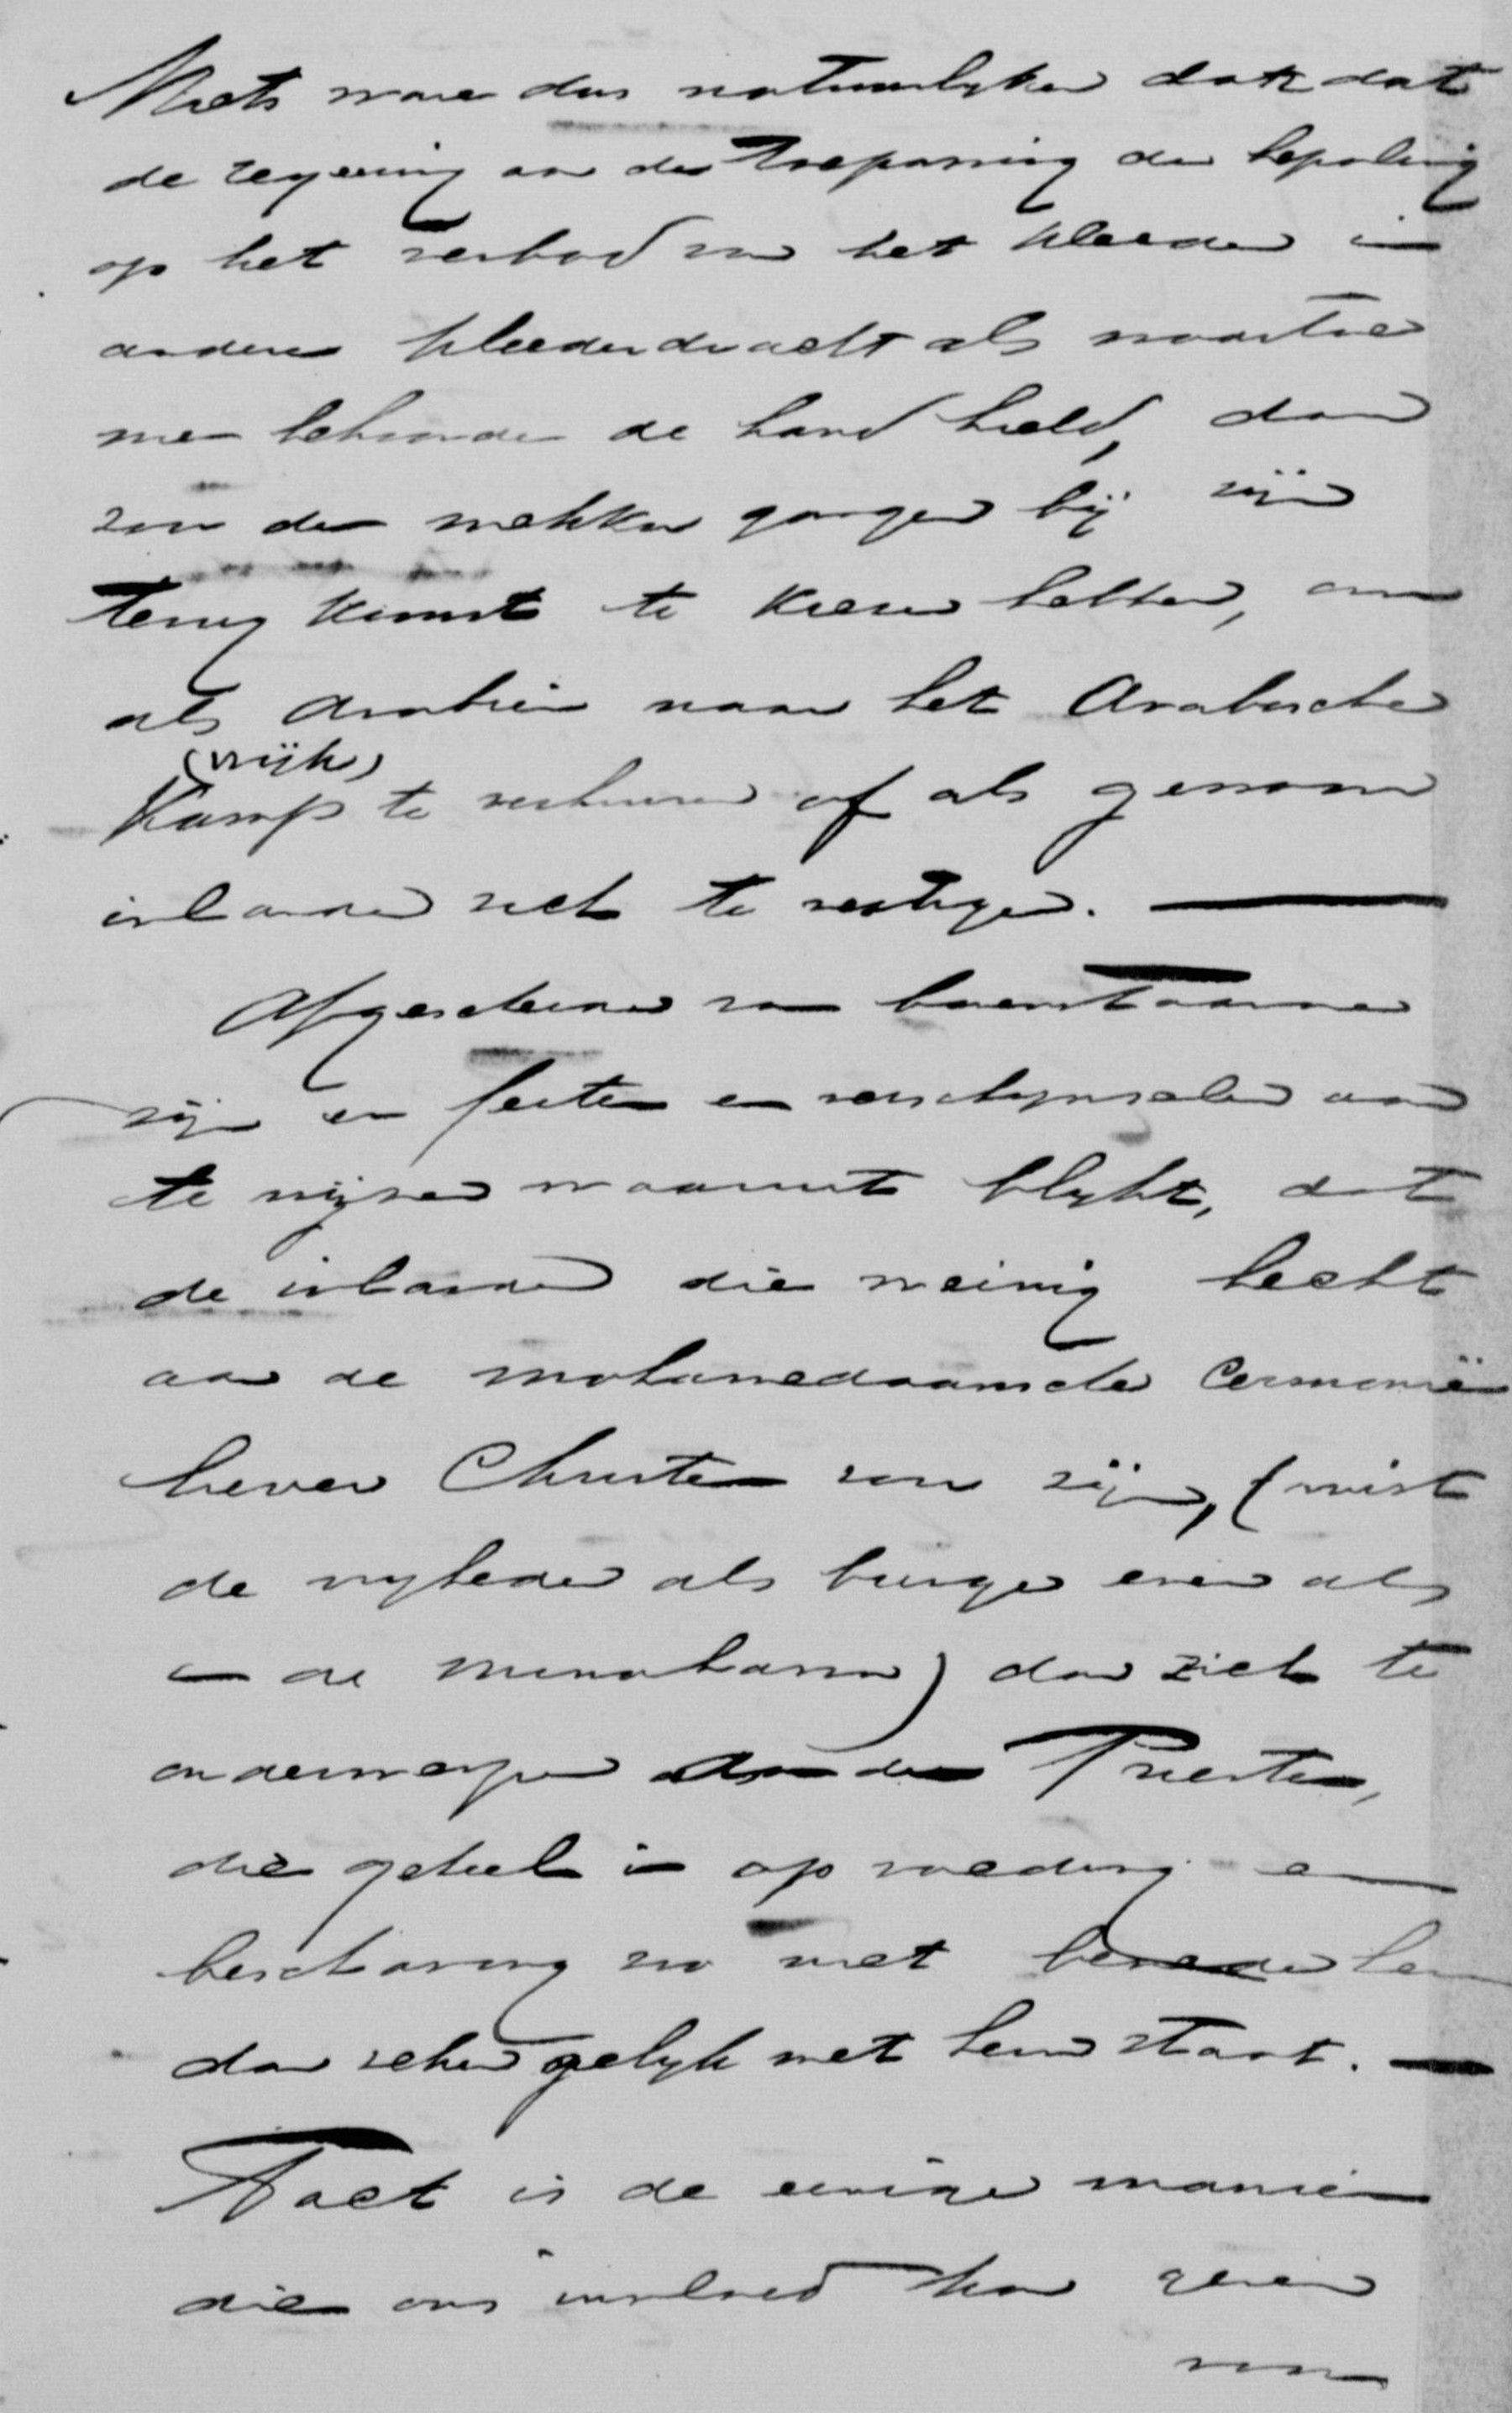 Niets ware dus natuurlyker dat dat
de regeering aan de toepassing der bepaling
op het verbod van het kleeden in
andere kleederdracht als waartoe
men behoorde de hand hield, dan
zou de mekka ganger bij zijn
terug komst te kiezen hebben, om
als Arabier naar het Arabische
(wijk)
Kamp te verhuizen of als gewoon
inlander zich te vestigen. —
Afgescheiden van bovenstaande
zijn er feiten en verschynselen aan
te wijzen waaruit blykt, dat
de inlander die weinig hecht
aan de mohamedaansche Ceremonië
liever Christen zou zijn, (mist
de vryheden als burger even als
in de Minahassa) dan zich te
onderwerpen aan de Priesters,
die geheel in op voeding en
beschaving zo niet beneden hem
dan zeker gelyk met hem staat. —
Tact is de eenige manier
die ons invloed kan geven
van